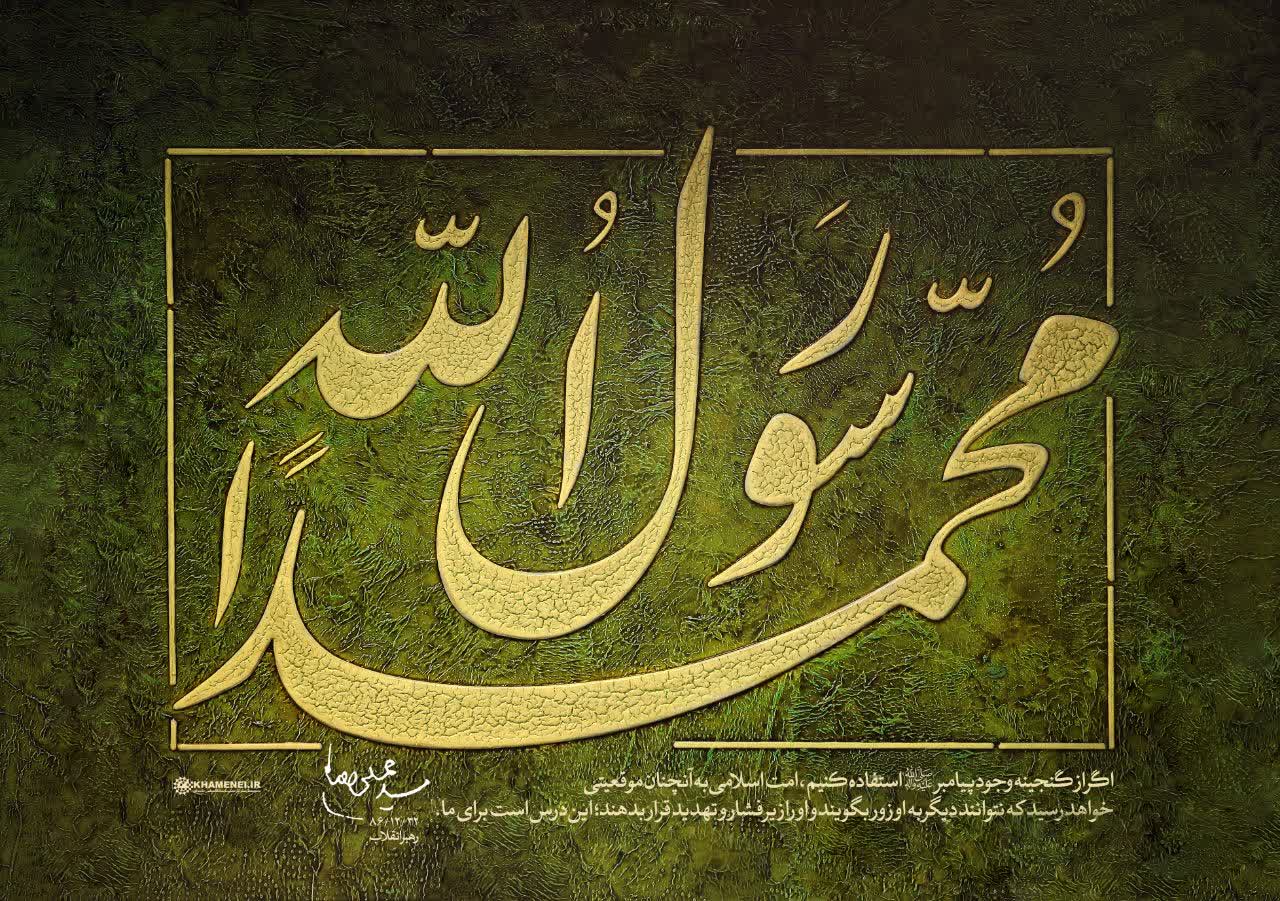 مُحمّداً رَسولُ اللّه
اگر از گنجینه وجود پیامبر ﷺ استفاده کنیم، امت اسلامی به آنچنان موقعیتی
خواهد رسید که نتوانند دیگر به او زور بگویند و او را زیر فشار و تهدید قرار بدهند؛ این درس است برای ما.
۸۶/۱۲/۲۲
رهبر انقلاب
KHAMENEI.IR